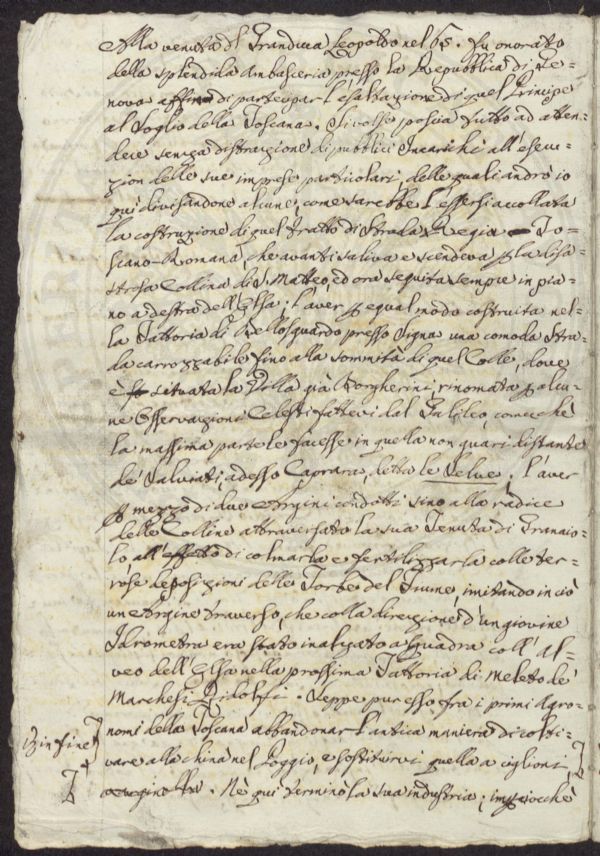 Alla venuta del Granduca Leopoldo nel 65. fu onorato
della splendida Ambasceria presso la Repubblica di Ge-
nova affin di partecipar l'esaltazione di quel Principe
al Soglio della Toscana. Si volse poscia tutto ad atten-
dere senza distrazione di pubblici Incarichi all'esecu-
zion delle sue imprese particolari, delle quali andrò io
qui divisandone alcune, come sarebbe l'essersi accollata
la costruzione di quel tratto di Strada Regia To-
scano-Romana, che avanti saliva e scendeva p la disa-
strosa Collina di S. Matteo, ed ora seguita sempre in pia-
no a destra dell'Elsa; l'aver p egual modo costruita nel-
la Fattoria di Bellosguardo presso Signa una comoda Stra-
da carrozzabile fino alla sommità di quel Colle, dove
è situata la Villa già Borgherini, rinomata p alcu-
ne Osservazioni Celesti fattevi dal Galileo, comecchè
la massima parte le facesse in quella non guari distante
de' Salviati, adesso Caprara, detta le Selve; l'aver
p mezzo di due Argini condotti sino alla radice
delle Colline attraversato la sua Tenuta di Granaio-
lo all'effetto di colmarla e fertilizzarla colle ter-
rose deposizioni delle Torbe del Fiume, imitando in ciò
un Argine traverso, che colla direzione d'un giovine
Idrometra era stato inalzato a squadra coll'al-
veo dell'Elsa nella prossima Fattoria di Meleto de'
Marchesi Ridolfi. Seppe pur esso fra i primi Agro-
nomi della Toscana abbandonar l'antica maniera di colti-
vare alla china nel Poggio, e sostituirvi quella a ciglioni,
. Nè qui terminò la sua industria; impciocchè
in fine